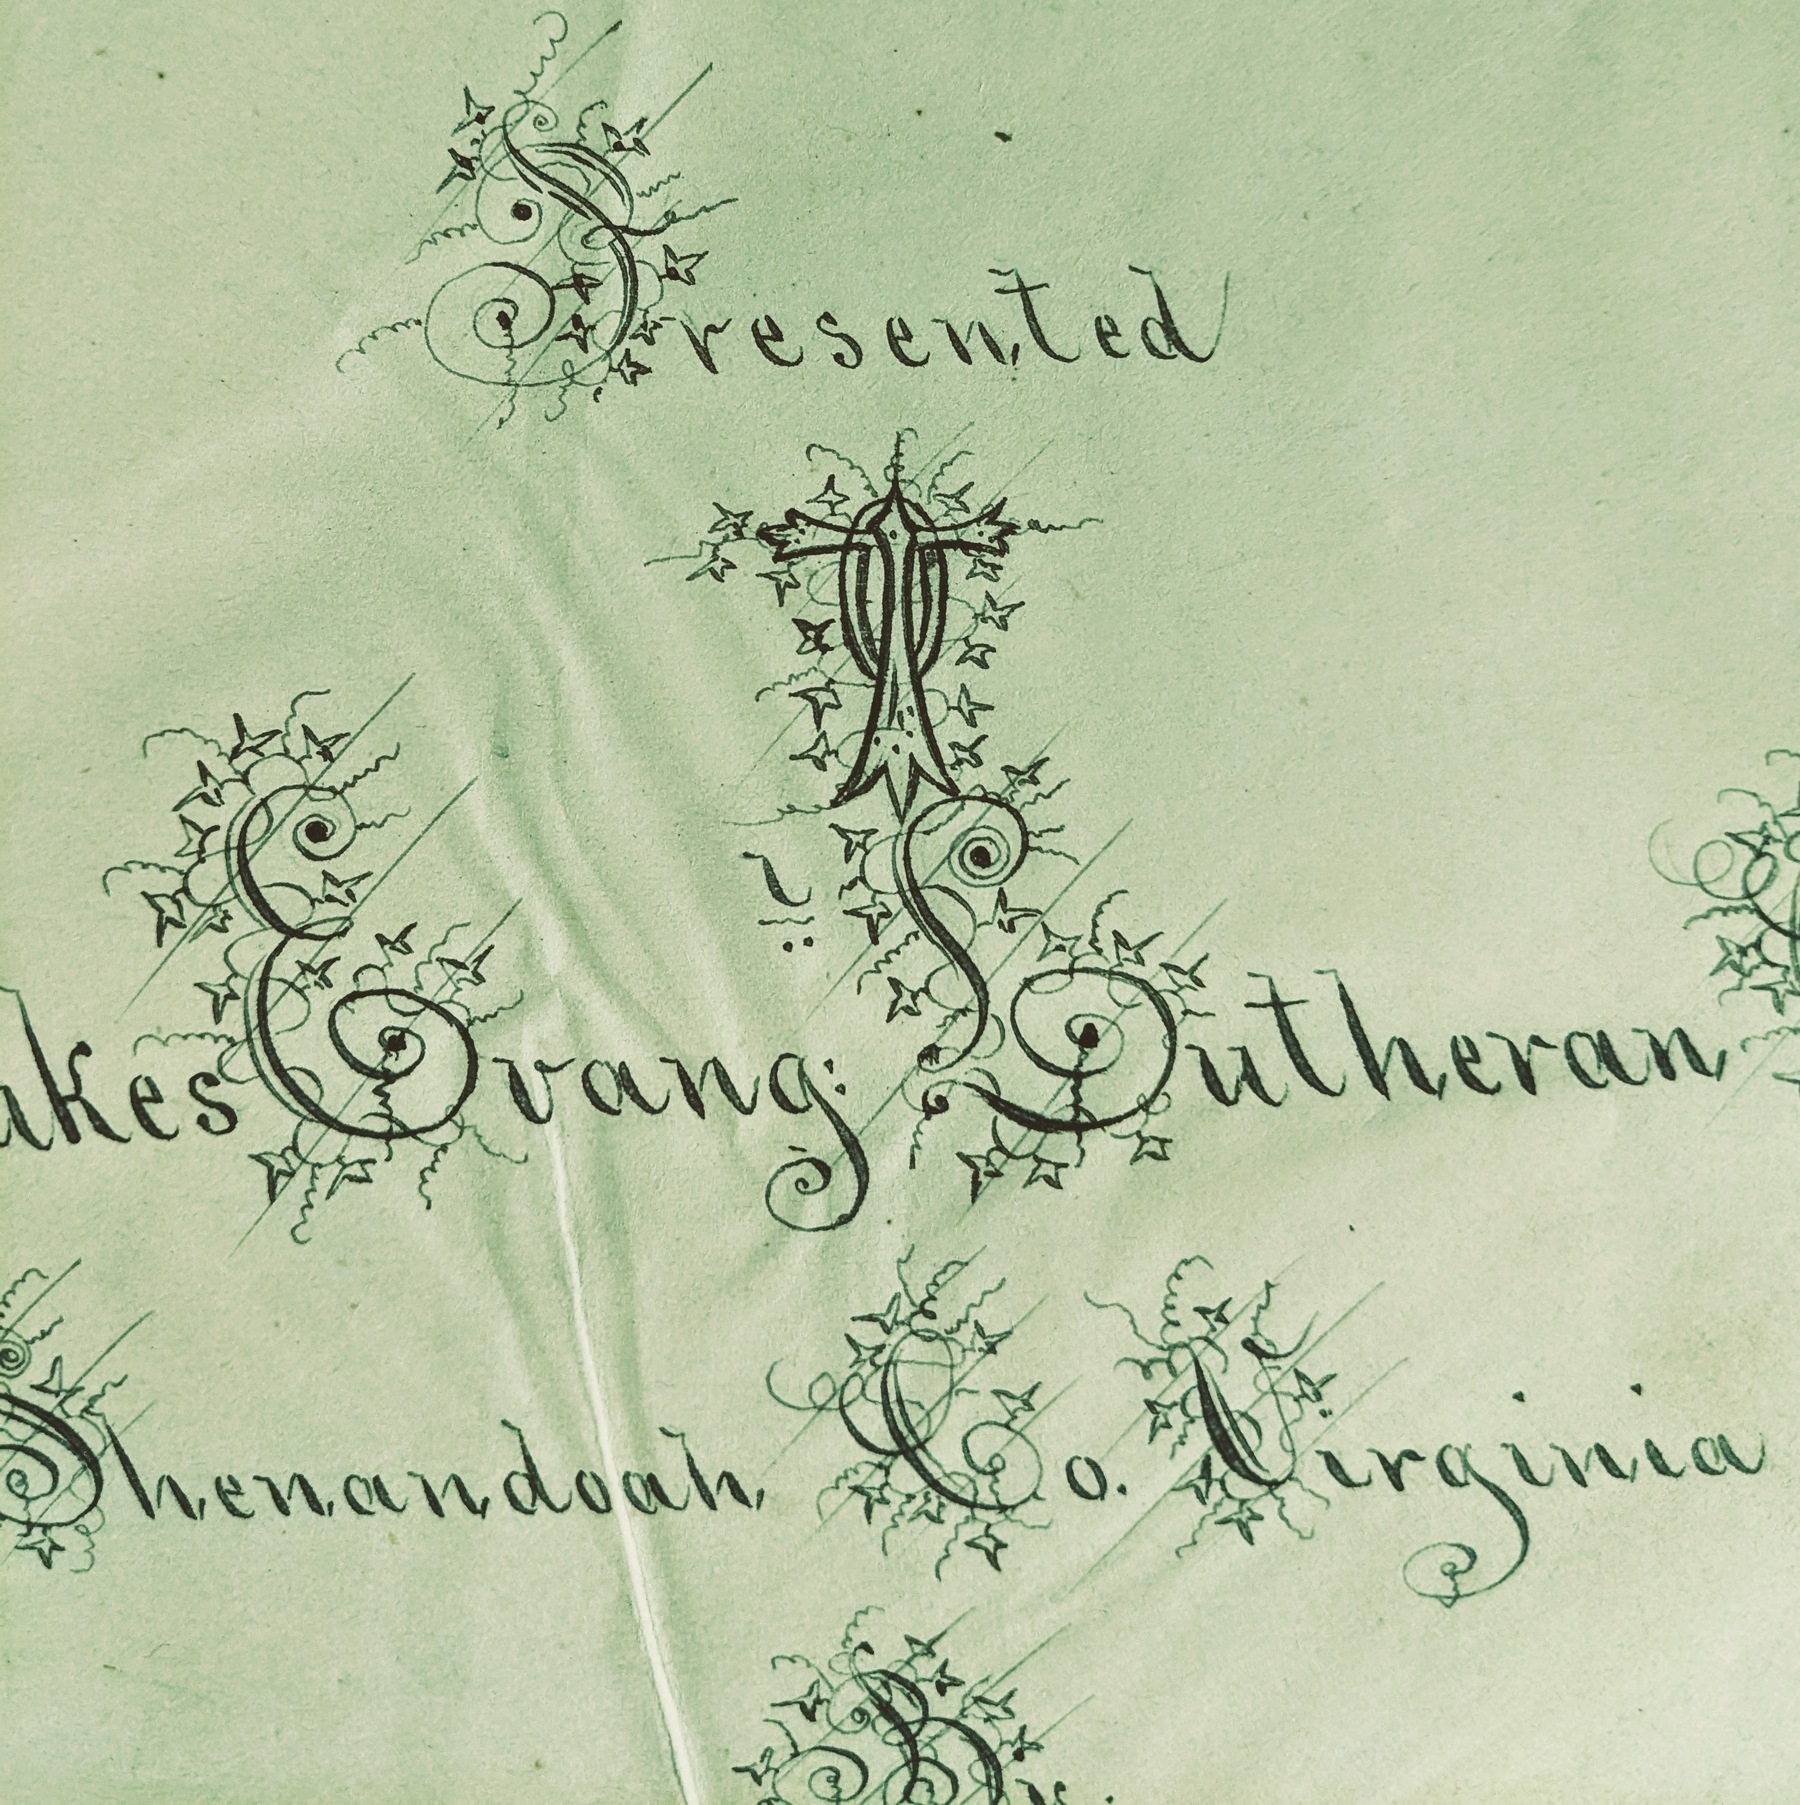 Presented
To
ukes Evang: Lutheran
Shenandoah Co. Virginia
By